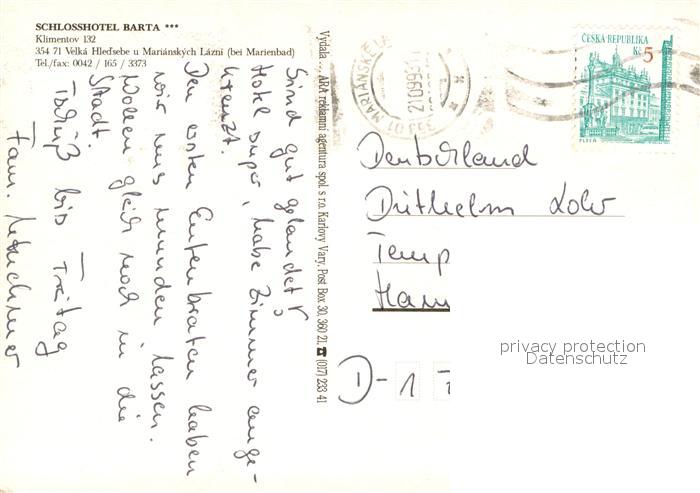 SCHLOSSHOTEL BARTA ***
Klimentov 132
354 71 Velká Hleďsebe u Mariánských Lázní (bei Marienbad)
Tel./fax: 0042 / 165 / 3373
Sind gut gelandet
Hotel super, habe Zimmer ange-
kreuzt.
Den ersten Entenbraten haben
wir uns munden lassen.
Wollen gleich noch in die
Stadt.
Tschüß bis Freitag
Fam.
Vydala ... ARA reklamní agentura spol. s r.o. Karlovy Vary, Post Box 30, 360 21, ☎ (017) 233 41
ČESKÁ REPUBLIKA
Kč 5
PLZEŇ
353 01 MARIÁNSKÉ LÁ
Deutschland
Diethelm
Temp
Ham
D-1
privacy protection
Datenschutz